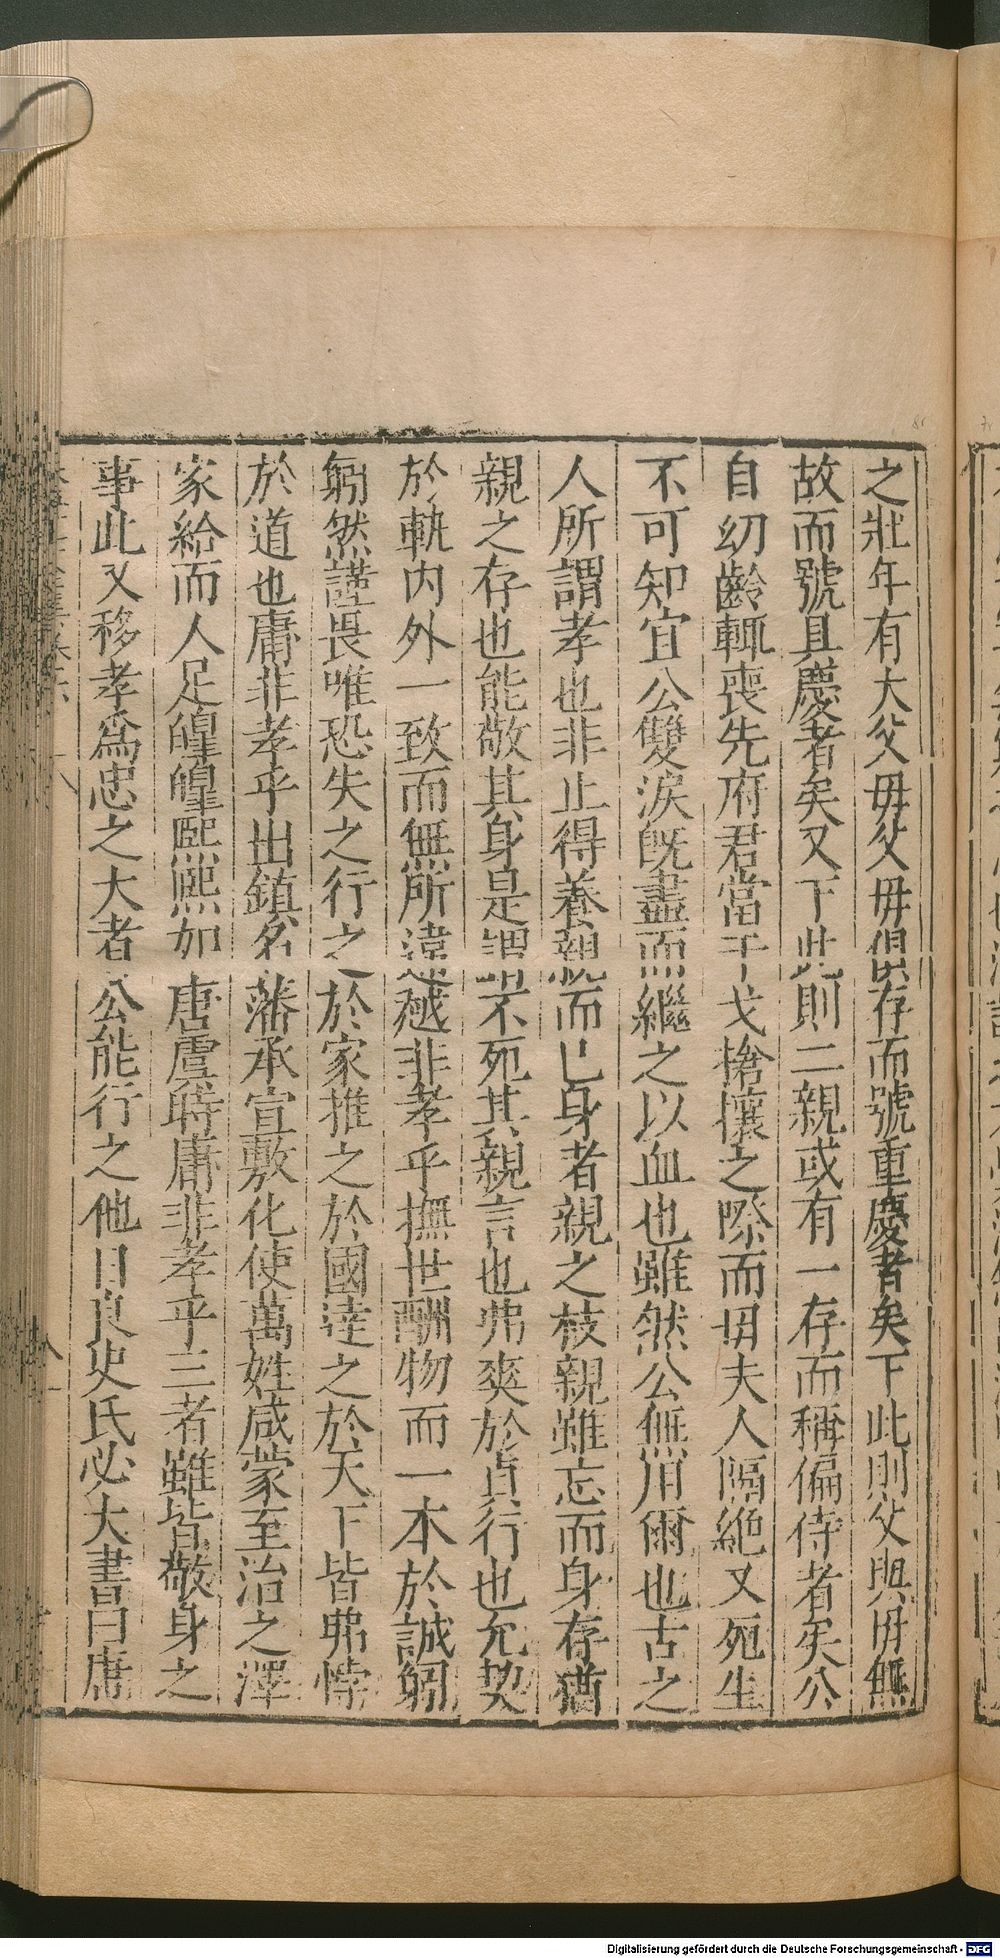 之壯年有大父母父母俱存而號重慶者矣下此則父與母無
故而號具慶者矣又下此則二親或有一存而稱偏侍者矣公
自幼齡輒喪先府君當干戈搶攘之際而母夫人隔絶又死生
不可知宜公雙淚既盡而繼之以血也雖然公無用爾也古之
人所謂孝也非止得養親而已身者親之枝親雖忘而身存猶
親之存也能敬其身是謂不死其親言也弗爽於貞行也允契
於軌内外一致而無所違越非孝乎撫世酬物而一本於誠躬
躬然謹畏唯恐失之行之於家推之於國達之於天下皆弗悖
於道也庸非孝乎出鎮名藩承宣敷化使萬姓咸蒙至治之澤
家給而人足皥皥熙熙如唐虞時庸非孝乎三者雖皆敬身之
事此又移孝爲忠之大者公能行之他日良史氏必大書曰唐
Digitalisierung gefördert durch die Deutsche Forschungsgemeinschaft - DFG